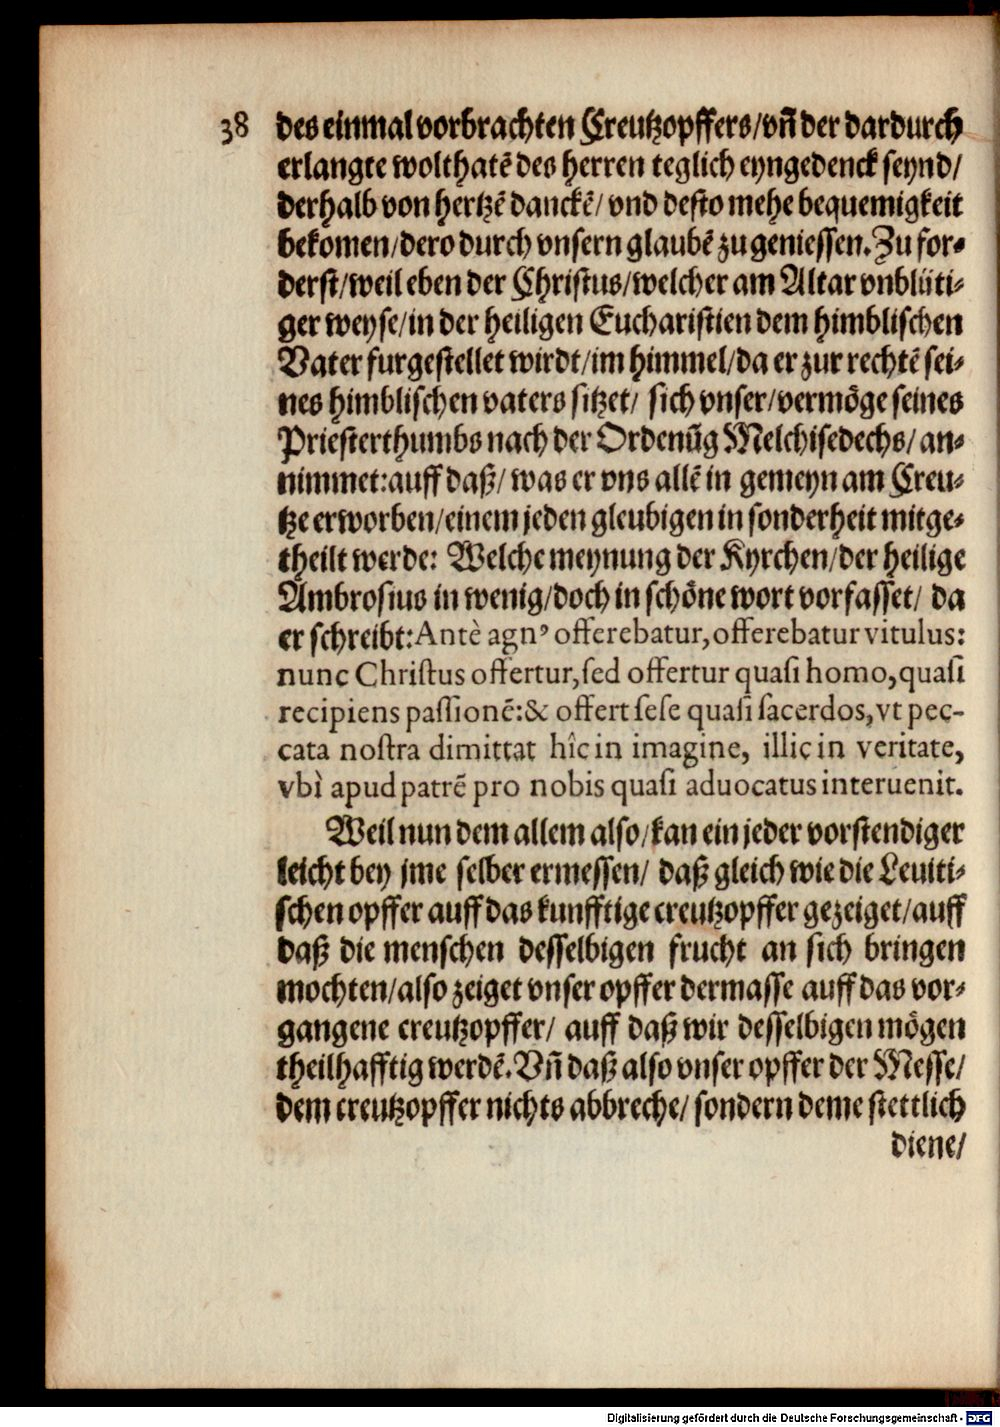 38 des einmal vorbrachten Creutzopffers/vñ der dardurch
erlangte wolthatẽ des herren teglich eyngedenck seynd/
derhalb von hertzẽ danckẽ/ vnd desto mehe bequemigkeit
bekomen/dero durch vnsern glaubẽ zu geniessen. Zu for-
derst/weil eben der Christus/welcher am Altar vnblüti-
ger weyse/in der heiligen Eucharistien dem himblischen
Vater furgestellet wirdt/im himmel/da er zur rechtẽ sei-
nes himblischen vaters sitzet/ sich vnser/vermöge seines
Priesterthumbs nach der Ordenũg Melchisedechs/ an-
nimmet:auff daß/ was er vns allẽ in gemeyn am Creu-
tze erworben/einem jeden gleubigen in sonderheit mitge-
theilt werde: Welche meynung der Kyrchen/der heilige
Ambrosius in wenig/doch in schöne wort vorfasset/ da
er schreibt:Antè agnꝰ offerebatur,offerebatur vitulus:
nunc Christus offertur,sed offertur quasi homo,quasi
recipiens passionẽ:& offert sese quasi sacerdos,vt pec-
cata nostra dimittat hîc in imagine, illic in veritate,
vbì apud patrẽ pro nobis quasi aduocatus interuenit.
Weil nun dem allem also/kan ein jeder vorstendiger
leicht bey jme selber ermessen/ daß gleich wie die Leuiti-
schen opffer auff das kunfftige creutzopffer gezeiget/auff
daß die menschen desselbigen frucht an sich bringen
mochten/also zeiget vnser opffer dermasse auff das vor-
gangene creutzopffer/ auff daß wir desselbigen mögen
theilhafftig werdẽ. Vñ daß also vnser opffer der Messe/
dem creutzopffer nichts abbreche/ sondern deme stettlich
diene/
Digitalisierung gefördert durch die Deutsche Forschungsgemeinschaft - DFG